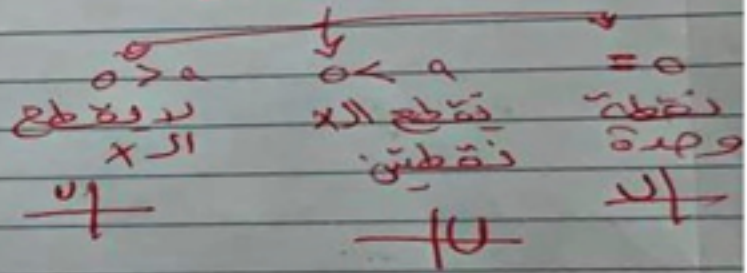 = 0
نقطة
وحدة
0 < a
يقطع الـ x
نقطتين
0 > a
لا يقطع
الـ x